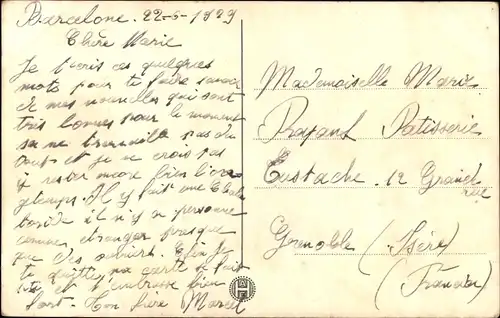 Barcelone. 22-6-1929
Chère Marie
Je t'écris ces quelques
mots pour te faire savoir
de mes nouvelles qui sont
très bonnes pour le moment
sa ne travaille pas du
tout et je ne crois pas
y rester encore bien
longtemps. Il y fait une
il n'y a personne
comme étranger presque
que des Enfin je
te quitte, ma carte
et t'embrasse bien
fort. Ton frère Marcel
Mademoiselle Marie
Rayant Patisserie
Eustache. 12 Grand
rue
Grenoble (Isère)
(Francia)